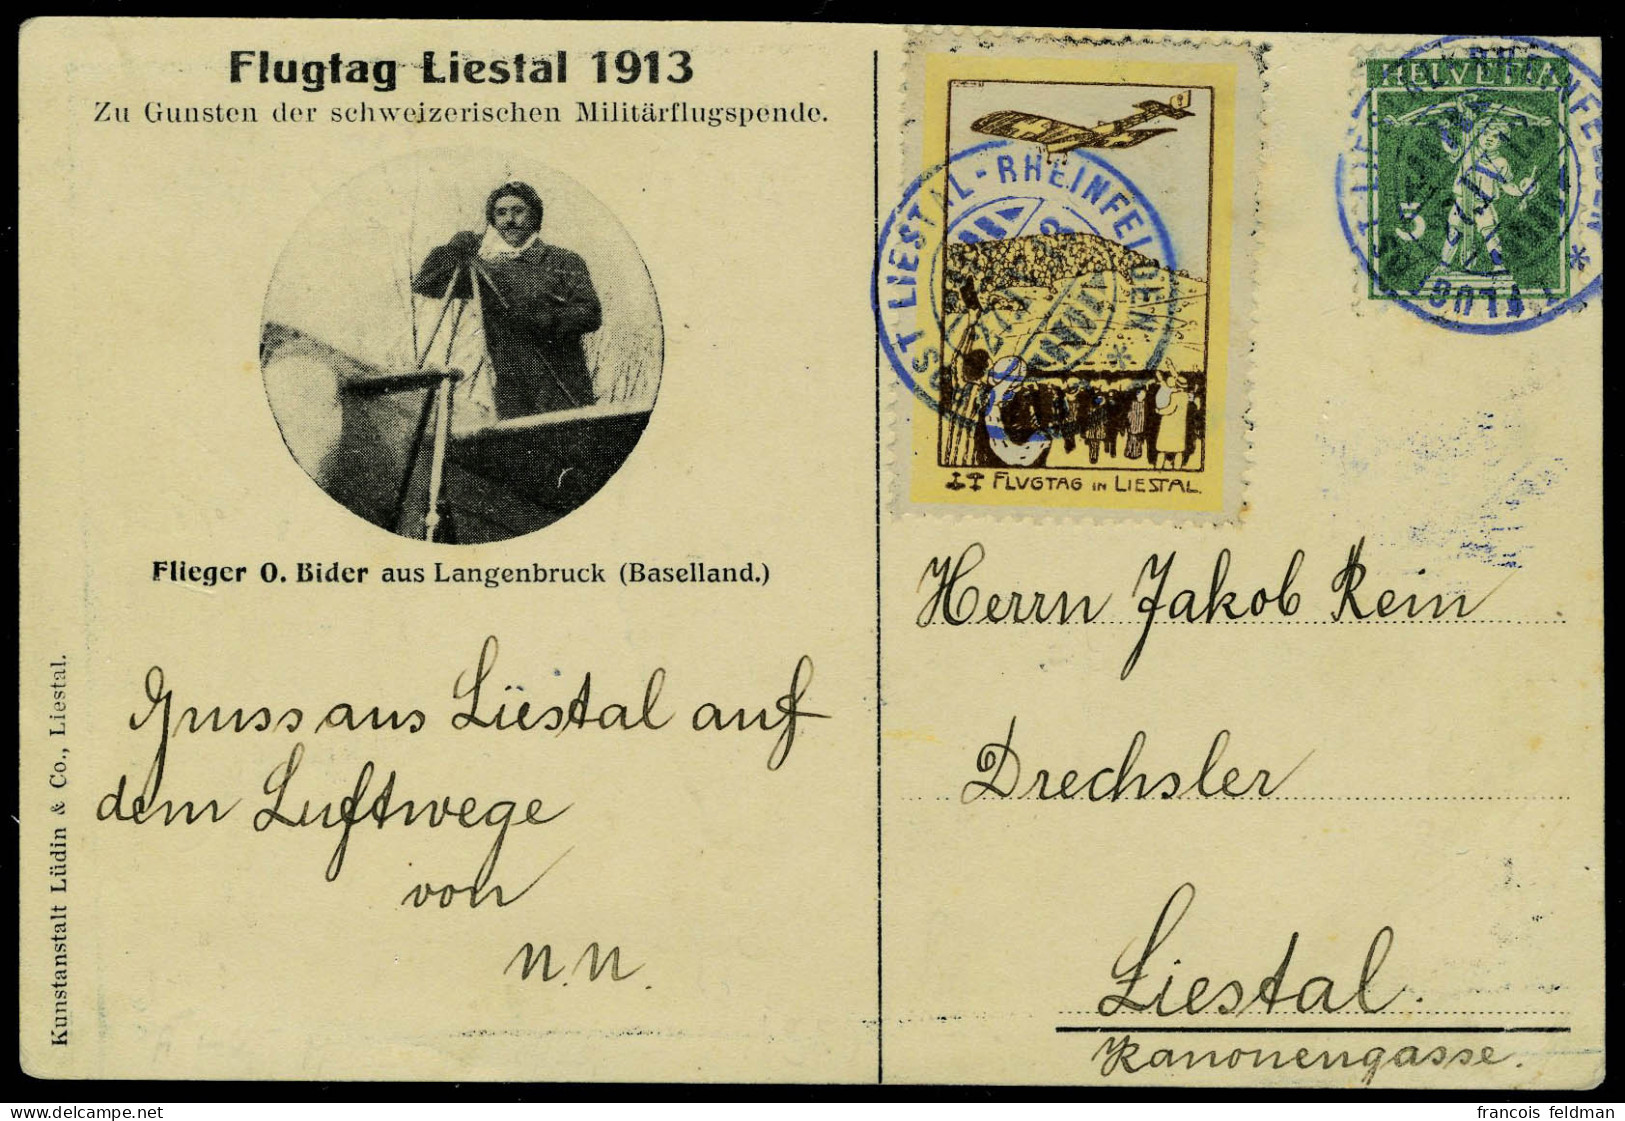 Flugtag Liestal 1913
Zu Gunsten der schweizerischen Militärflugspende.
Flieger O. Bider aus Langenbruck (Baselland.)
Kunstanstalt Lüdin & Co., Liestal.
Gruss aus Liestal auf
dem Luftwege
von
N.N.
LIESTAL-RHEINFELDEN *
FLVGTAG IN LIESTAL.
HELVETIA
5
RHEINFELDEN *
Herrn Jakob Rein
Drechsler
Liestal.
Kanonengasse.
francois feldman